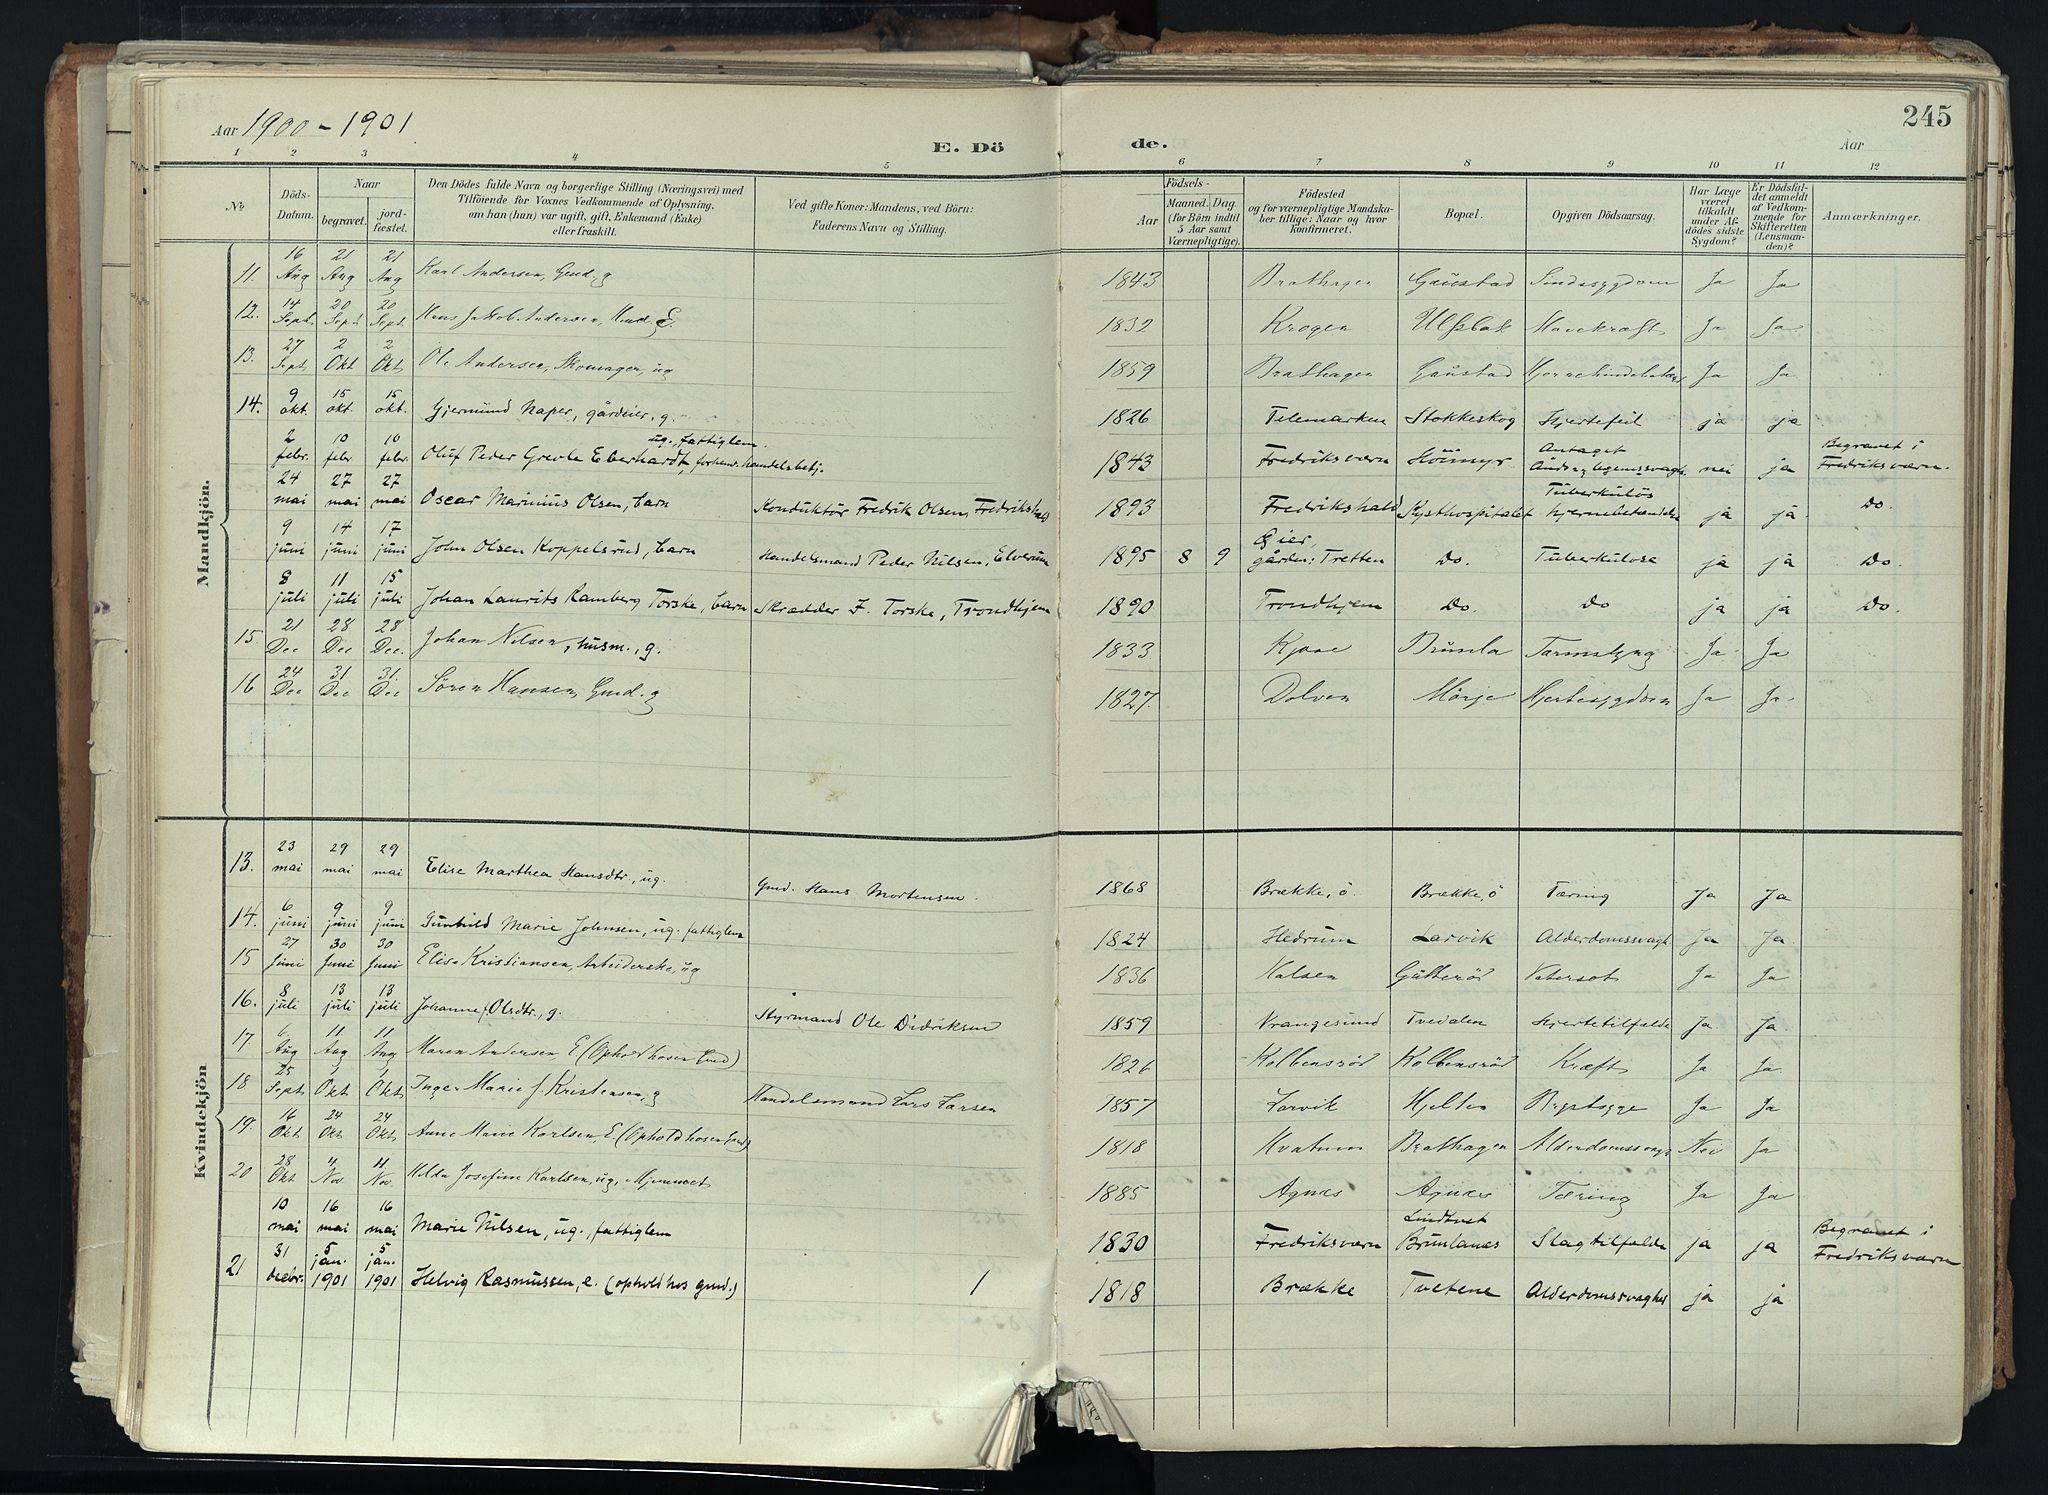 Aar 1900 - 1901
E. Dö de.
Aar
245
1 2 3 4 5 6 7 8 9 10 11 12
No
Döds-Datum.
Naar
begravet.
jord-fæstet.
Den Dödes fulde Navn og borgerlige Stilling (Næringsvei) med
Tilföiende for Voxnes Vedkommende af Oplysning,
om han (hun) var ugift, gift, Enkemand (Enke)
eller fraskilt.
Ved gifte Koner: Mandens, ved Börn:
Faderens Navn og Stilling.
Födsels-
Aar
Maaned. Dag.
(for Börn indtil
5 Aar samt
Værnepligtige).
Födested
og for værnepligtige Mandska-
ber tillige: Naar og hvor
konfirmeret.
Bopæl.
Opgiven Dödsaarsag.
Har Læge
været
tilkaldt
under Af-
dödes sidste
Sygdom?
Er Dödsfal-
det anmeldt
af Vedkom-
mende for
Skifteretten
(Lensman-
den)?
Anmærkninger.
Mandkjön.
11. 16 Aug 21 Aug 21 Aug Karl Andersen, Gmd. g 1843 Brathagen Gaustad Sindssygdom Ja Ja
12. 14 Sept. 20 Sept 20 Sept. Hans Jakob Andersen, Hmd. E. 1832 Krogen Ulfsbak Mavekræft Ja Ja
13. 27 Sept. 2 Okt 2 Okt Ole Andersen, Skomager, ug 1859 Brathagen Gaustad Ja Ja
14. 9 okt. 15 okt. 15 okt. Gjermund Naper, gårdeier, g. 1826 Telemarken Stokkeskog Hjertefeil ja ja
2 febr. 10 febr. 10 febr. Oluf Peder Grevle Eberhardt, forhenv. handelsbetj. ug., fattiglem. 1843 Fredriksværn Höimyr Antaget Ånds- og legemssvagh. nei ja Begravet i Fredriksværn.
24 mai 27 mai 27 mai Oscar Marinius Olsen, barn Konduktör Fredrik Olsen, Fredrikshald 1893 Fredrikshald Kysthospitalet Tuberkulös hjernebetændelse ja ja Do.
9 juni 14 juni 17 juni John Olsen Koppelsrud, barn Handelsmand Peder Nilsen, Elverum 1895 8 9 Gier, gården: Tretten Do. Tuberkulose ja ja Do.
8 juli 11 juli 15 juli Johan Laurits Ramberg Torske, barn Skrædder F. Torske, Trondhjem 1890 Trondhjem Do. Do ja ja Do.
15. 21 Dec 28 Dec 28 Dec. Johan Nilsen, husm., g. 1833 Kjose Brunla Tarmslyng Ja Ja
16 24 Dec 31 Dec 31. Dec Sören Hansen, Gmd. g 1827. Dolven Mörje Hjertesygdom Ja Ja
Kvindekjön
13. 23 mai 29 mai 29 mai Elise Marthea Hansdtr., ug. Gmd. Hans Mortensen. 1868 Brække, ö. Brække, ö Tæring Ja Ja
14. 6 juni 9 juni 9 juni Gunhild Marie Johnsen, ug. fattiglem 1824 Hedrum Larvik Alderdomssvagh. Ja Ja.
15 27 Juni 30 Juni 30 Juni Elise Kristiansen, Arbeiderske, ug 1836 Halsen Gutteröd Vatersot Ja Ja
16. 8 juli 13 juli 13 juli Johanne Olsdtr., g. Styrmand Ole Didriksen 1859 Vrangesund Tvedalen Hjertetilfælde Ja Ja.
17 6 Aug 11 Aug 11 Aug Maren Andersen E (Ophold hosen Gmd) 1826 Kolbensröd Kolbensröd Kræft Ja Ja
18 25 Sept 1 Okt 1 Okt Inger Marie J. Kristensen, g Handelsmand Lars Larsen 1857 Larvik Hjelten Ja Ja
19. 16 Okt 24 Okt 24 Okt Anne Marie Karlsen, E. (Ophold hosen Gmd) 1818 Kvatum Brathagen Alderdomssvagh Nei Ja
20 28 Okt 4 Nov 4 Nov Hilda Josefine Karlsen, ug, Hjemmet 1885 Agnæs Agnæs Tæring Ja Ja
10 mai 16 mai 16 mai Marie Nilsen, ug., fattiglem 1830 Fredriksværn Lindtvet Brunlanes Slagtilfælde ja ja Begravet i Fredriksværn.
21 31 decbr. 5 jan. 1901 5 jan. 1901 Helvig Rasmussen, e. (ophold hos gmd.) 1 1818 Brække Tvetene Alderdomssvaghed ja ja